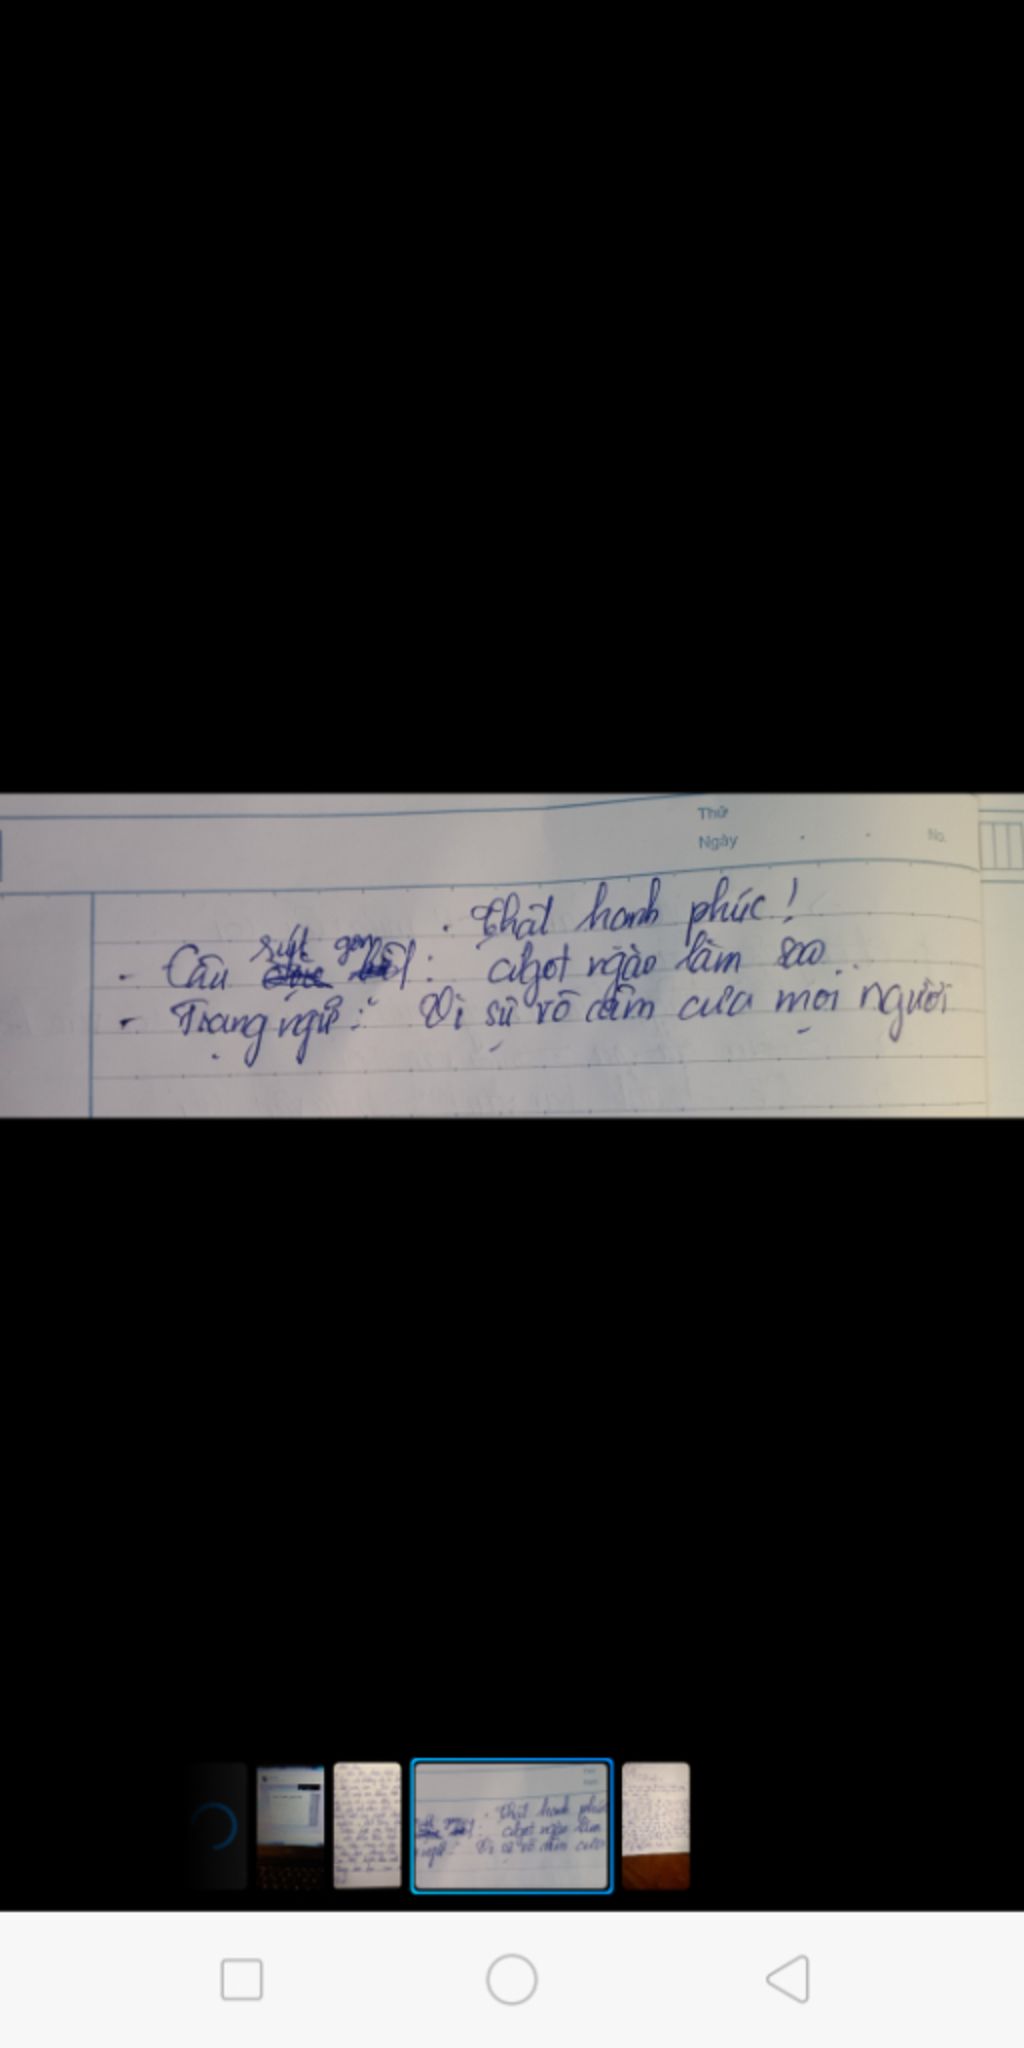 Thứ
Ngày
No.
. Thật hạnh phúc!
- Câu rút gọn: Ngọt ngào làm sao..
- Trạng ngữ: Vì sự vô cảm của mọi người